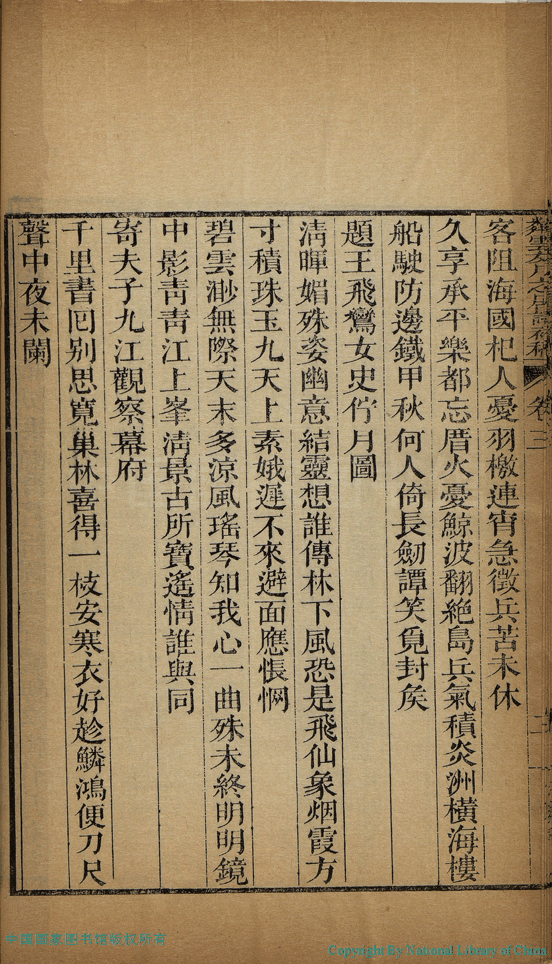 卷三
客阻海國杞人憂羽檄連宵急徵兵苦未休
久享承平樂都忘厝火憂鯨波翻絶島兵氣積炎洲橫海樓
船駛防邊鐵甲秋何人倚長劒譚笑覓封矦
題王飛鸞女史佇月圖
淸暉媚殊姿幽意結靈想誰傳林下風恐是飛仙象烟霞方
寸積珠玉九天上素娥遲不來避面應悵惘
碧雲渺無際天末多涼風瑤琴知我心一曲殊未終明明鏡
中影靑靑江上峯淸景古所寶遙情誰與同
寄夫子九江觀察幕府
千里書囘别思寬巢林喜得一枝安寒衣好趁鱗鴻便刀尺
聲中夜未闌
中国国家图书馆版权所有
Copyright By National Library of China